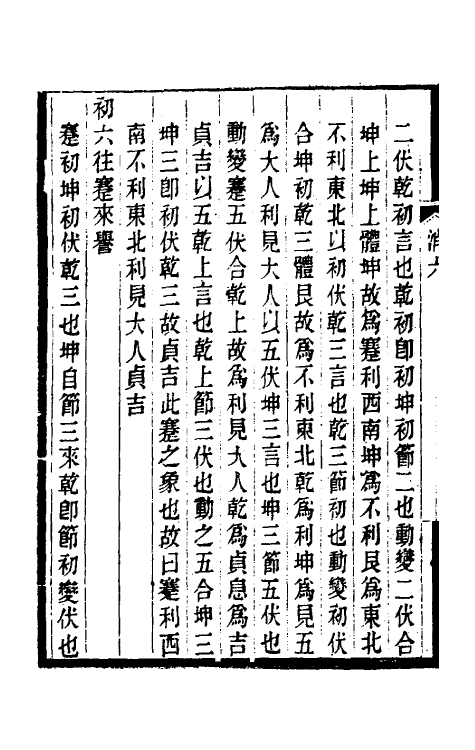 二伏乾初言也乾初卽初坤初節二也動變二伏合
坤上坤上體坤故爲蹇利西南坤爲不利艮爲東北
不利東北以初伏乾三言也乾三節初也動變初伏
合坤初乾三體艮故爲不利東北乾爲利坤爲見五
爲大人利見大人以五伏坤三言也坤三節五伏也
動變蹇五伏合乾上故爲利見大人乾爲貞息爲吉
貞吉以五乾上言也乾上節三伏也動之五合坤三
坤三卽初伏乾三故貞吉此蹇之象也故曰蹇利西
南不利東北利見大人貞吉
初六往蹇來譽
蹇初坤初伏乾三也坤自節三來乾卽節初變伏也
消六